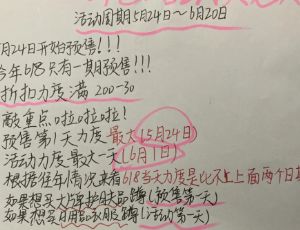 活动周期5月24日～6月20日
月24日开始预售！！！
今年618只有一期预售！！！
折扣力度满 200-30
敲重点啦啦啦！
预售第1天力度最大（5月24日）
活动力度最大一天（6月1日）
根据往年情况来看618当天力度是比不上上面两个日
如果想买大牌护肤品蹲（预售第一天）
如果想买日用品衣服蹲（活动第一天）